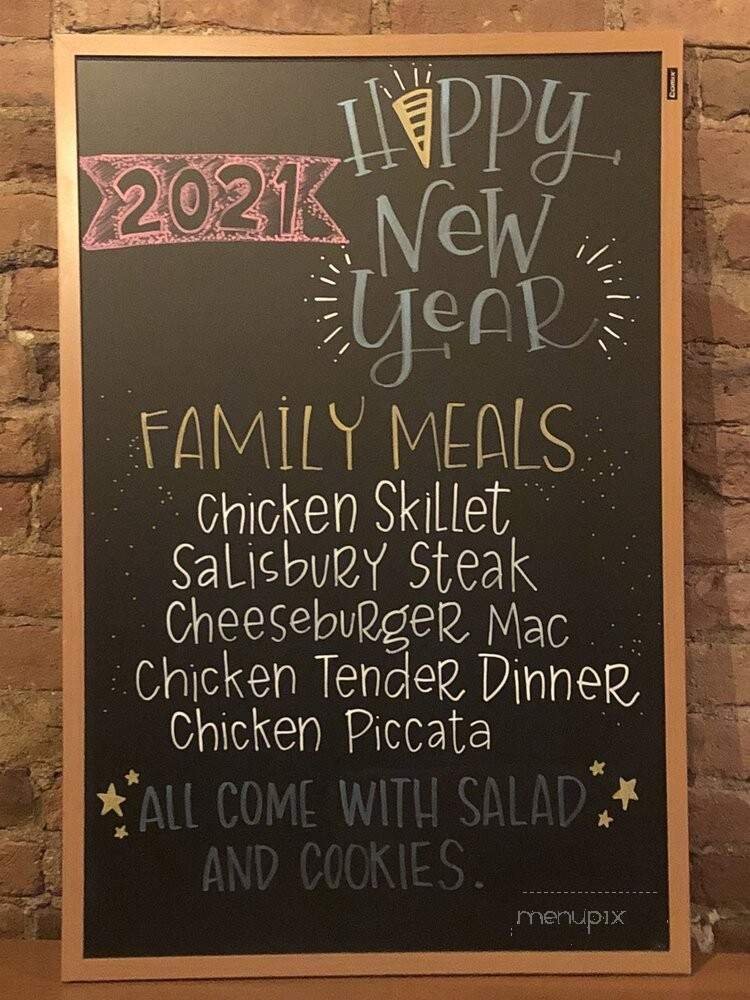 HAPPY
2021
NeW
YeAR
FAMiLY MEALS
Chicken Skillet
SaLisbuRY Steak
CheeseburgeR Mac
Chicken TendeR DinneR
Chicken Piccata
ALL COME WITH SALAD
AND COOKIES.
menupix
Comix